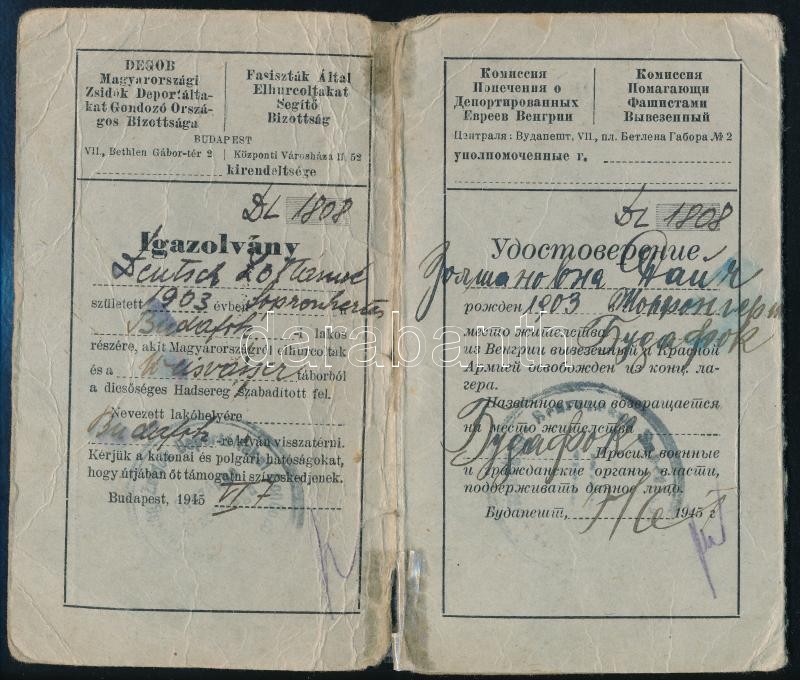 DEGOB
Magyarországi
Zsidók Deportálta-
kat Gondozó Orszá-
gos Bizottsága
Fasiszták Által
Elhurcoltakat
Segítő
Bizottság
BUDAPEST
VII., Bethlen Gábor-tér 2
Központi Városháza II. 52
kirendeltsége
DL 1808
Igazolvány
Deutsch
született 1903 évben
Budafok -i lakos
részére, akit Magyarországról elhurcoltak
és a táborból
a dicsőséges Hadsereg szabadított fel.
Nevezett lakóhelyére
Budafok -re kíván visszatérni.
Kérjük a katonai és polgári hatóságokat,
hogy útjában őt támogatni szíveskedjenek.
Budapest, 1945 VI 7
Комиссия
Попечения о
Депортированных
Евреев Венгрии
Комиссия
Помагающи
Фашистами
Вывезенный
Централя: Будапешт, VII., пл. Бетлена Габора № 2
уполномоченные г.
DL 1808
Удостоверение
Золтановна Дайч
рожден 1903
место жителства Будафок
из Венгрии вывезенный и Красной
Армией освобожден из конц. ла-
гера.
Названное лицо возвращается
на место жителства
Будафок
Просим военные
и гражданские органы власти,
поддерживать данное лицо.
Будапешт, 1945 г
darabanth